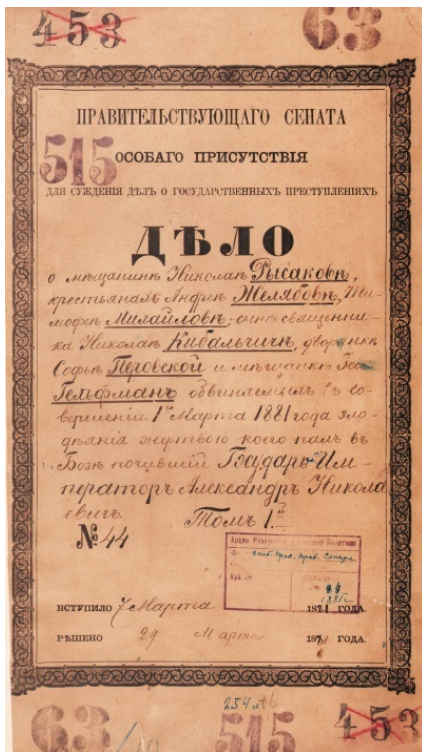 453 63
ПРАВИТЕЛЬСТВУЮЩАГО СЕНАТА
515
ОСОБАГО ПРИСУТСТВІЯ
ДЛЯ СУЖДЕНІЯ ДѢЛЪ О ГОСУДАРСТВЕННЫХЪ ПРЕСТУПЛЕНІЯХЪ
ДѢЛО
о мѣщанинѣ Николаѣ Рысаковѣ,
крестьянахъ Андреѣ Желябовѣ, Ти-
мофеѣ Михайловѣ; сынѣ священни-
ка Николаѣ Кибальчичѣ, дворянкѣ
Софьѣ Перовской и мѣщанкѣ
Гельфманъ обвиняемыхъ въ со-
вершеніи 1го Марта 1881 года зло-
дѣянія жертвою коего палъ въ
Бозѣ почившій Государь Им-
ператоръ Александръ Никола
евичъ. Томъ 1й
№ 44
Ф. Особ. Прис. Прав. Сената
Арх. №
1881
ВСТУПИЛО 7 Марта 1881 ГОДА.
РѢШЕНО 29 Марта 1881 ГОДА.
254
63 515 453